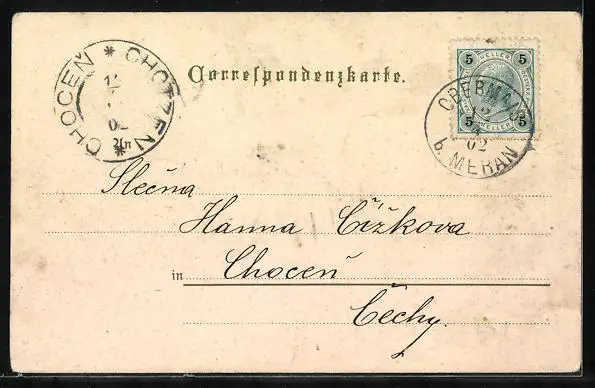 CHOCEŇ * CHOTZEN *
02
Correspondenzkarte.
5 HELLER 5
5 HELLER 5
OBERMAIS
02
b. MERAN
Slečna
Hanna Čížkova
in Choceň
Čechy.